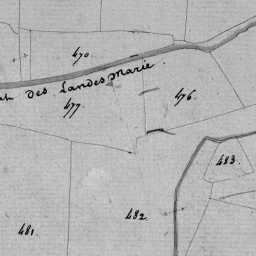 470
des Landes Marie.
477.
476.
483.
482.
481.